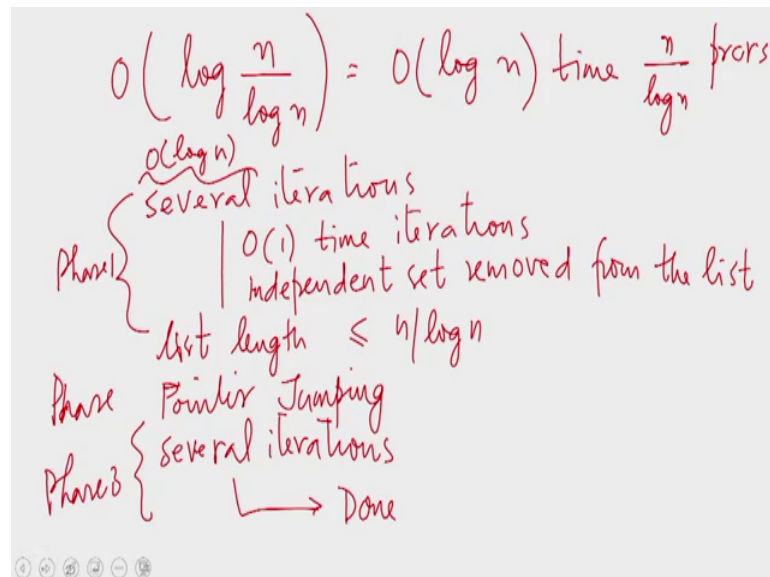 O( log n/log n ) = O(log n) time n/log n prcrs
O(log n)
several iterations
O(1) time iterations
independent set removed from the list
Phase 1
list length ≤ n/log n
Phase Pointer Jumping
several iterations
Phase 3
Done